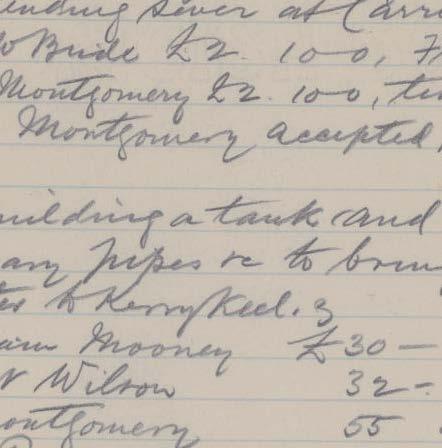 ending sewer at Carr
Bride £2. 10-0, F
Montgomery £2. 10-0, ten
Montgomery accepted
uilding a tank and
ary pipes &c to brin
ter to Kerrykeel.
iam Mooney £30 —
N Wilson 32 -
ontgomery 55